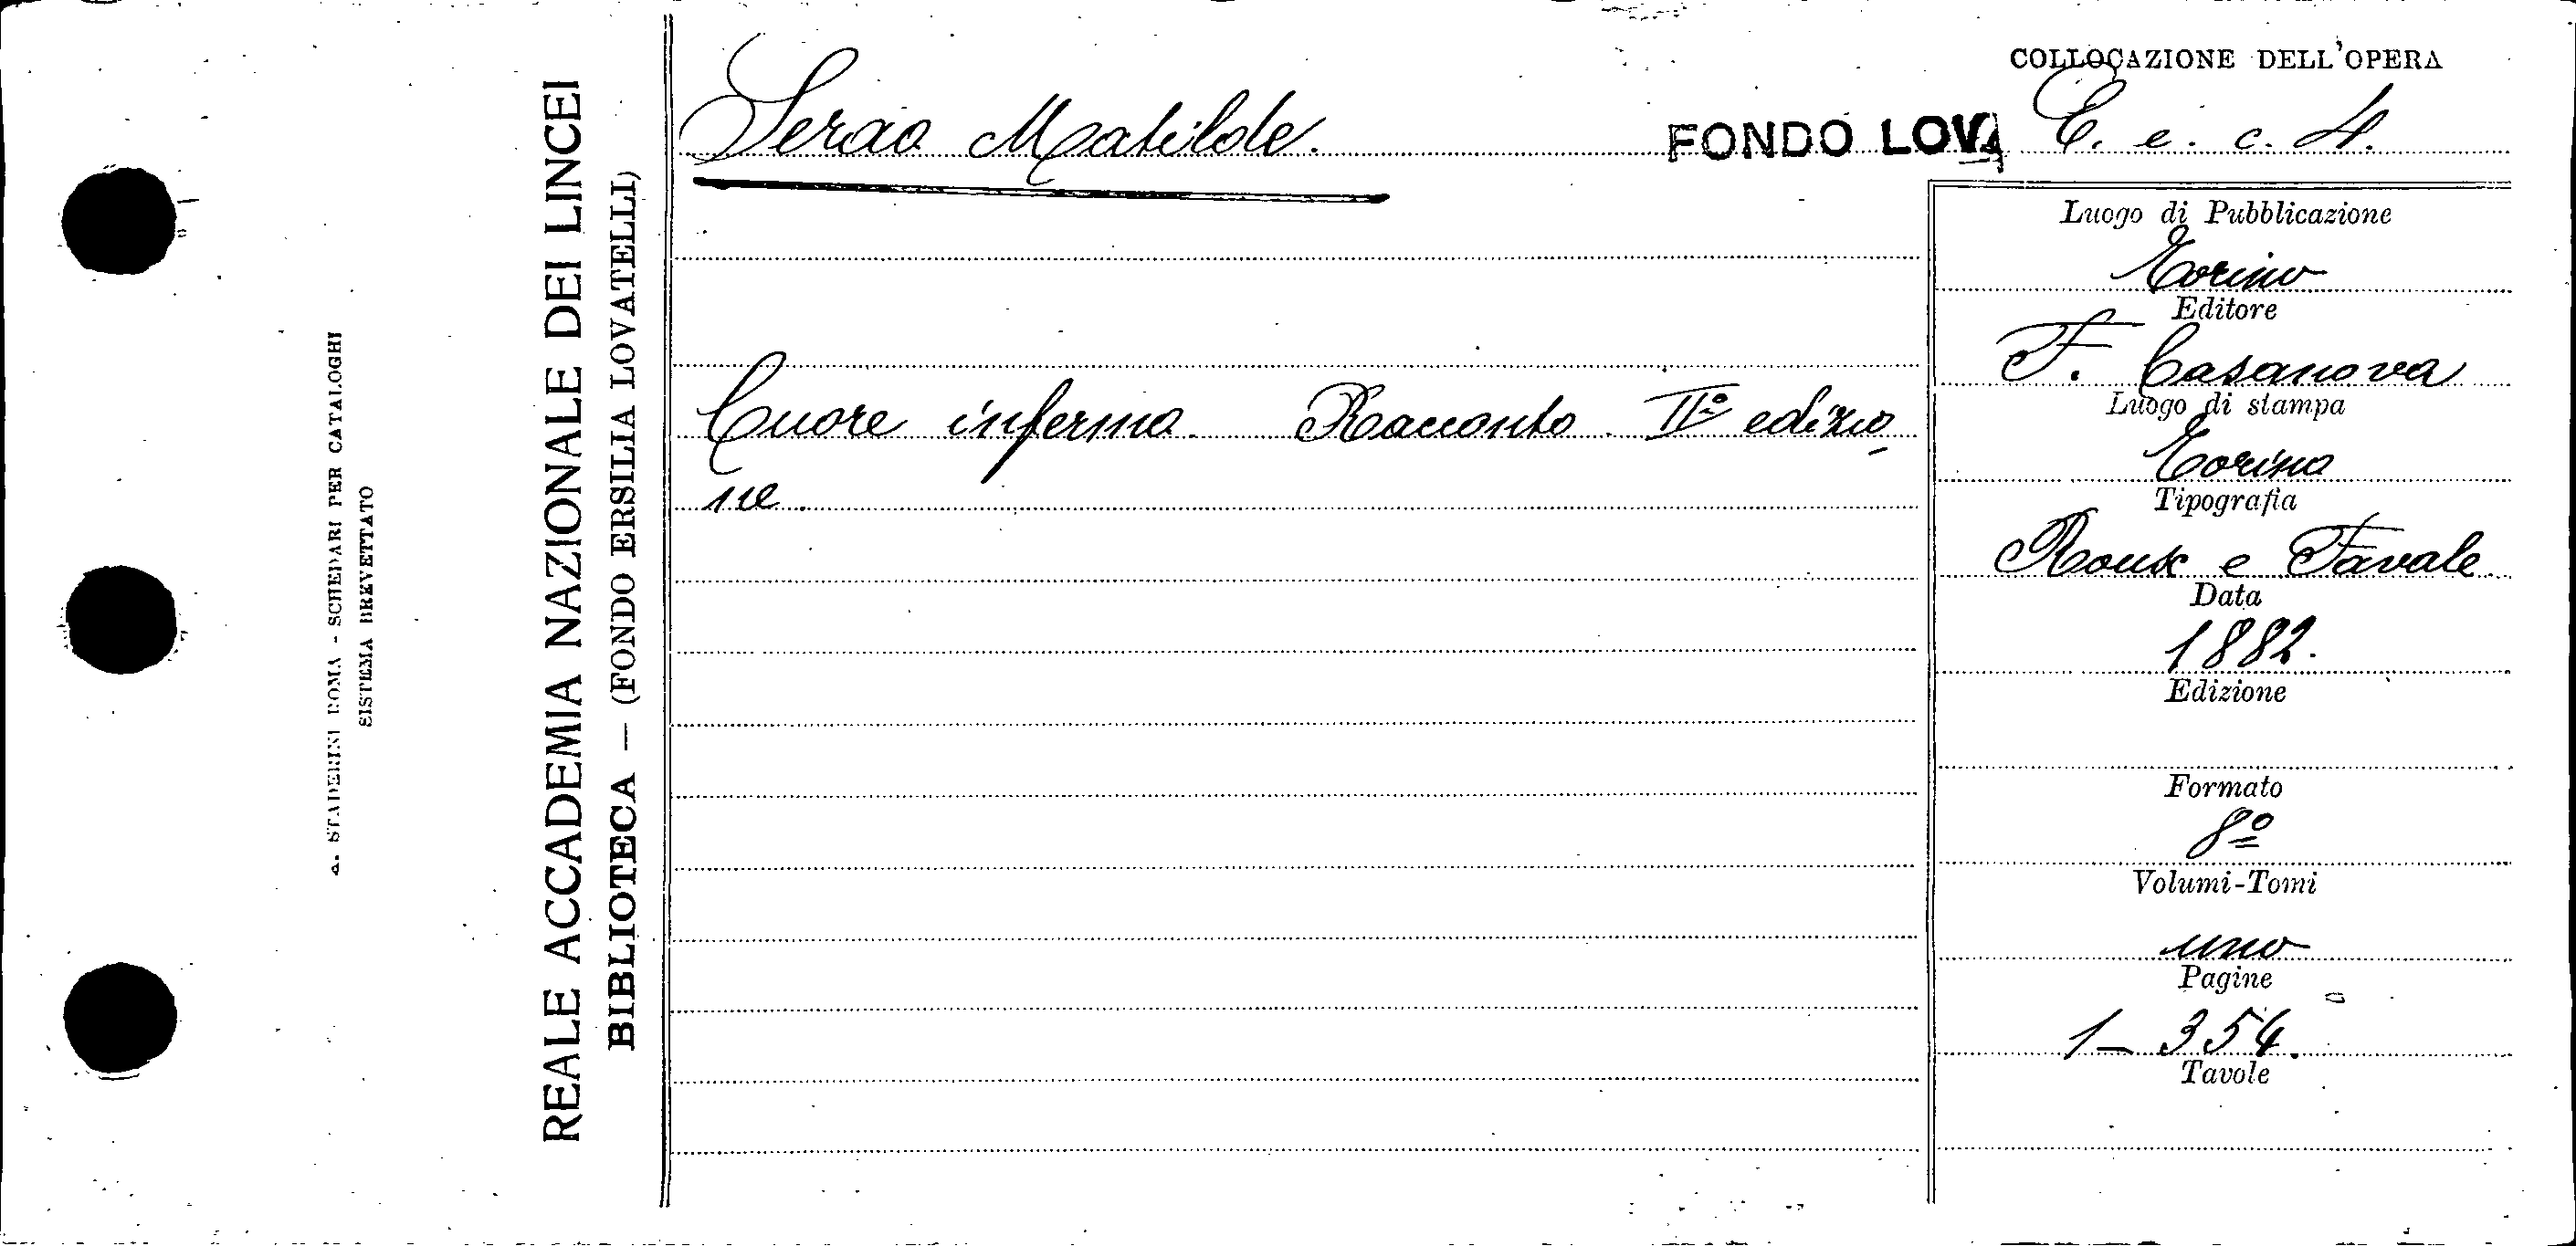 A. STADERINI ROMA - SCHEDARI PER CATALOGHI
SISTEMA BREVETTATO
REALE ACCADEMIA NAZIONALE DEI LINCEI
BIBLIOTECA — (FONDO ERSILIA LOVATELLI)
COLLOCAZIONE DELL'OPERA
Serao Matilde. FONDO LOVA e. c.
Luogo di Pubblicazione
Torino
Editore
F. Casanova
Luogo di stampa
Torino
Tipografia
Roux e Favale
Data
1882.
Edizione
Formato
8º
Volumi-Tomi
uno
Pagine
1-354.
Tavole
Cuore infermo. Racconto. IIª edizio-
ne.